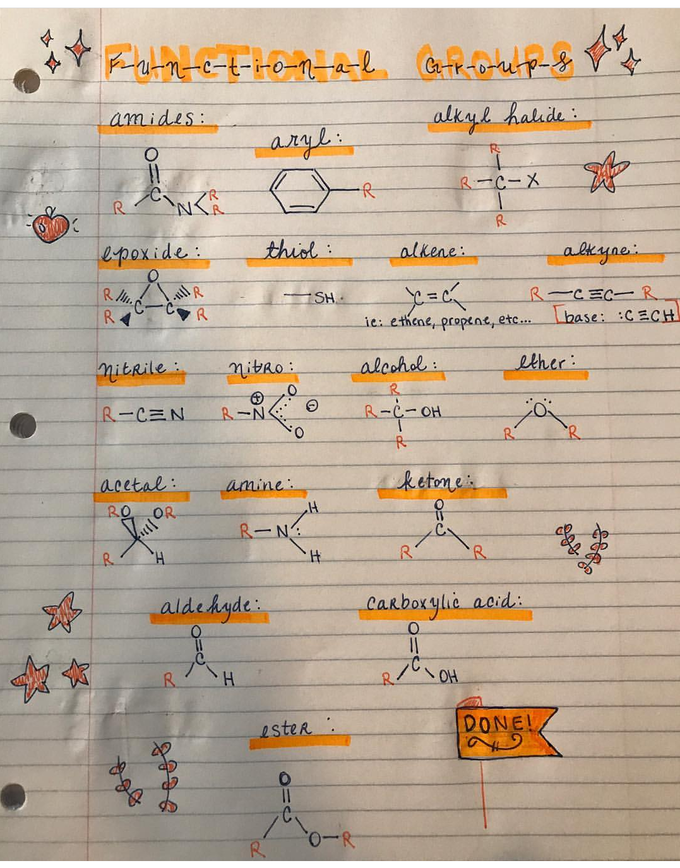 FUNCTIONAL GROUPS
F-u-n-c-t-i-o-n-a-l G-r-o-u-p-s
amides:
aryl:
alkyl halide:
O
C
R N R
R
R
R
R-C-X
R
epoxide:
thiol:
alkene:
alkyne:
O
R C C R
R R
-SH
C=C
ie: ethene, propene, etc...
R-C≡C-R
[base: :C≡CH]
nitrile:
nitro:
alcohol:
ether:
R-C≡N
R-N⊕ O O ⊖
R
R-C-OH
R
:O:
R R
acetal:
amine:
ketone:
RO OR
R H
R-N: H
H
O
C
R R
aldehyde:
carboxylic acid:
O
C
R H
O
C
R OH
DONE!
ester:
O
C
R O-R